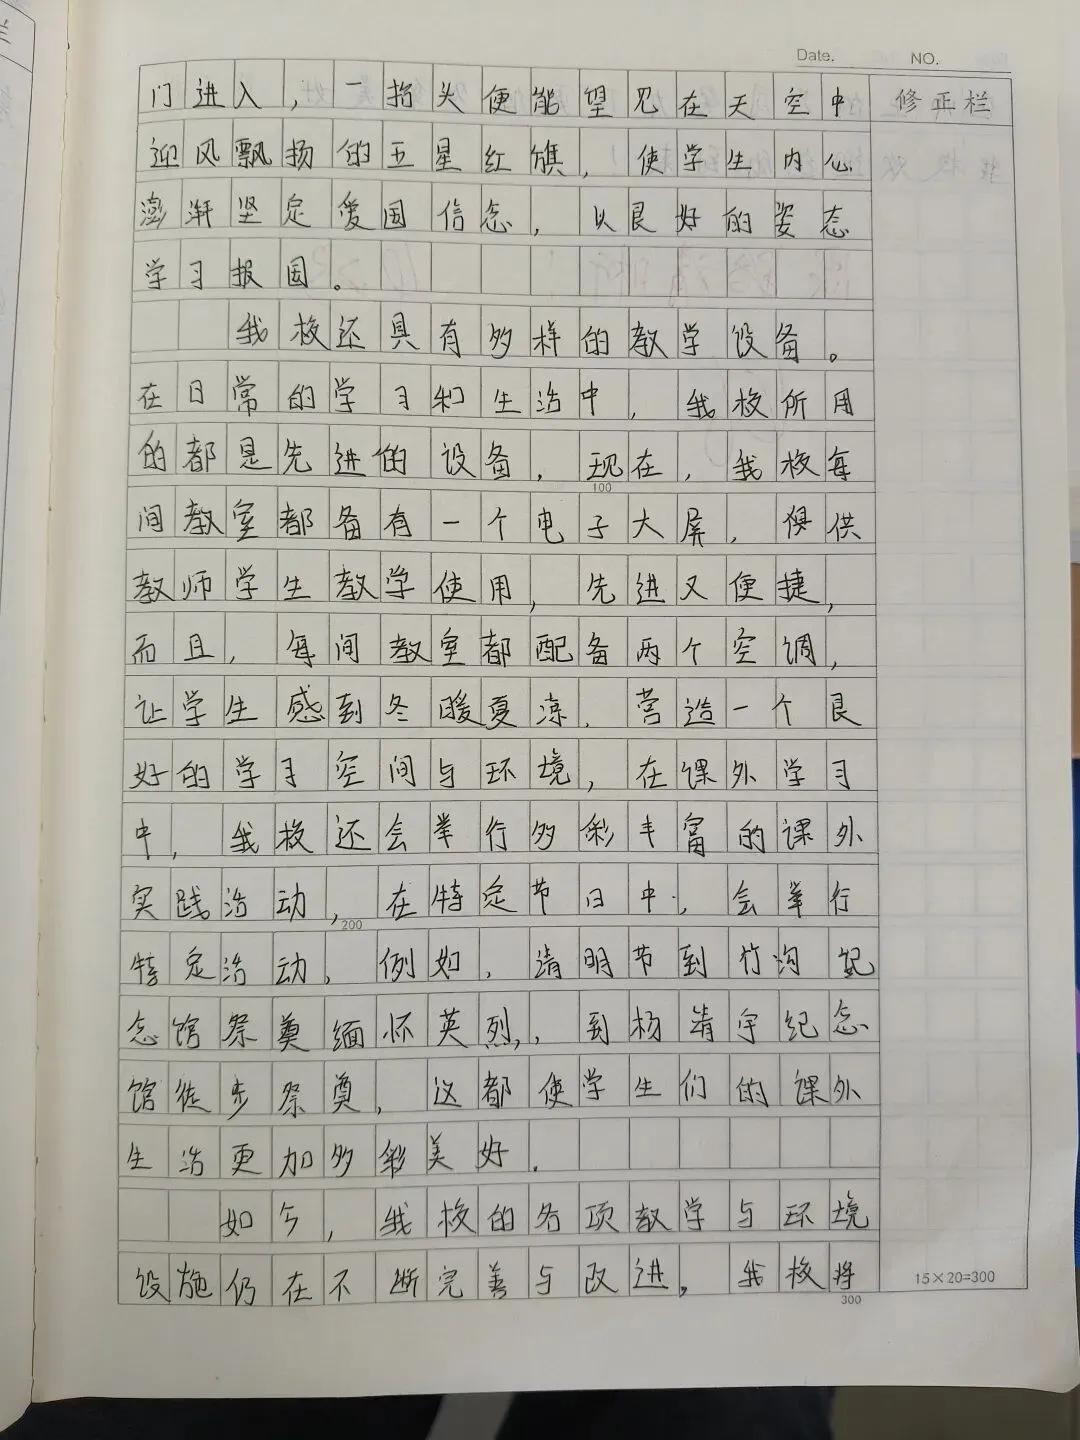 Date.        NO.
门进入，一抬头便能望见在天空中
修正栏
迎风飘扬的五星红旗，使学生内心
澎湃坚定爱国信念，以良好的姿态
学习报国。
我校还具有多样的教学设备。
在日常的学习和生活中，我校所用
的都是先进的设备，现在，我校每
100
间教室都备有一个电子大屏，供
教师学生教学使用，先进又便捷，
而且，每间教室都配备两个空调，
让学生感到冬暖夏凉，营造一个良
好的学习空间与环境，在课外学习
中，我校还会举行多彩丰富的课外
实践活动，在特定节日中，会举行
200
特定活动，例如，清明节到竹沟纪
念馆祭奠缅怀英烈，，到杨靖宇纪念
馆徒步祭奠，这都使学生们的课外
生活更加多彩美好．
如今，我校的各项教学与环境
设施仍在不断完善与改进，我校将
15×20=300
300